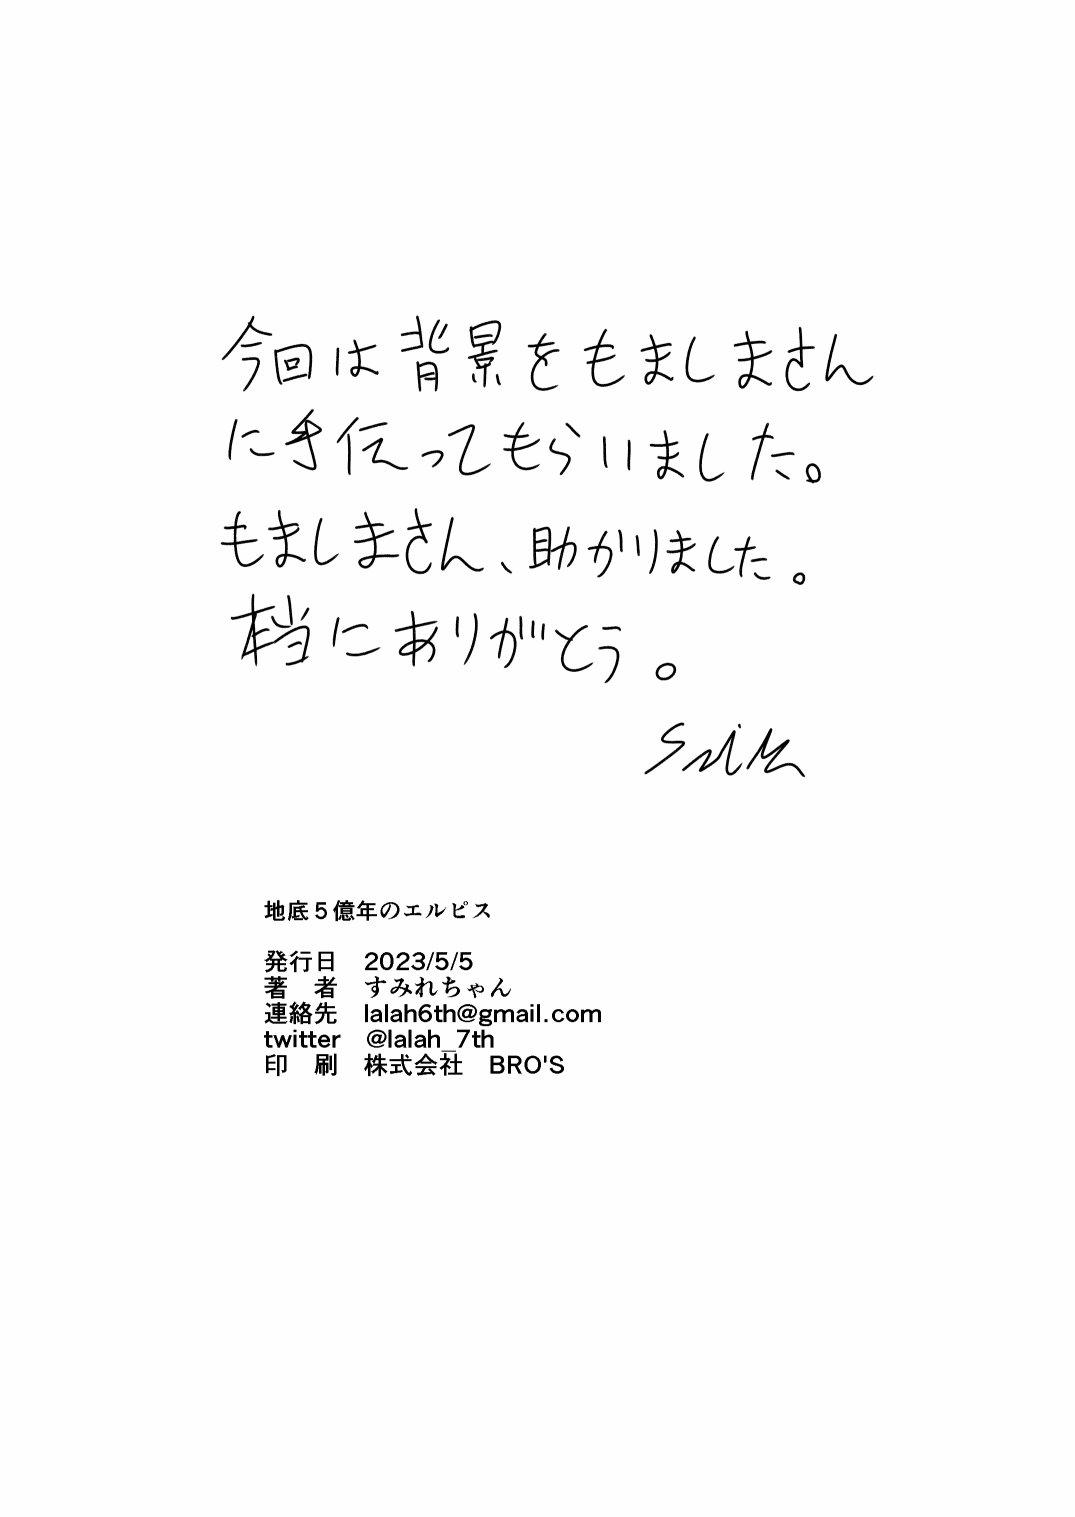 今回は背景をもましまさん
に手伝ってもらいました。
もましまさん、助かりました。
本当にありがとう。
地底5億年のエルピス
発行日　2023/5/5
著　者　すみれちゃん
連絡先　lalah6th@gmail.com
twitter　@lalah_7th
印　刷　株式会社　BRO'S